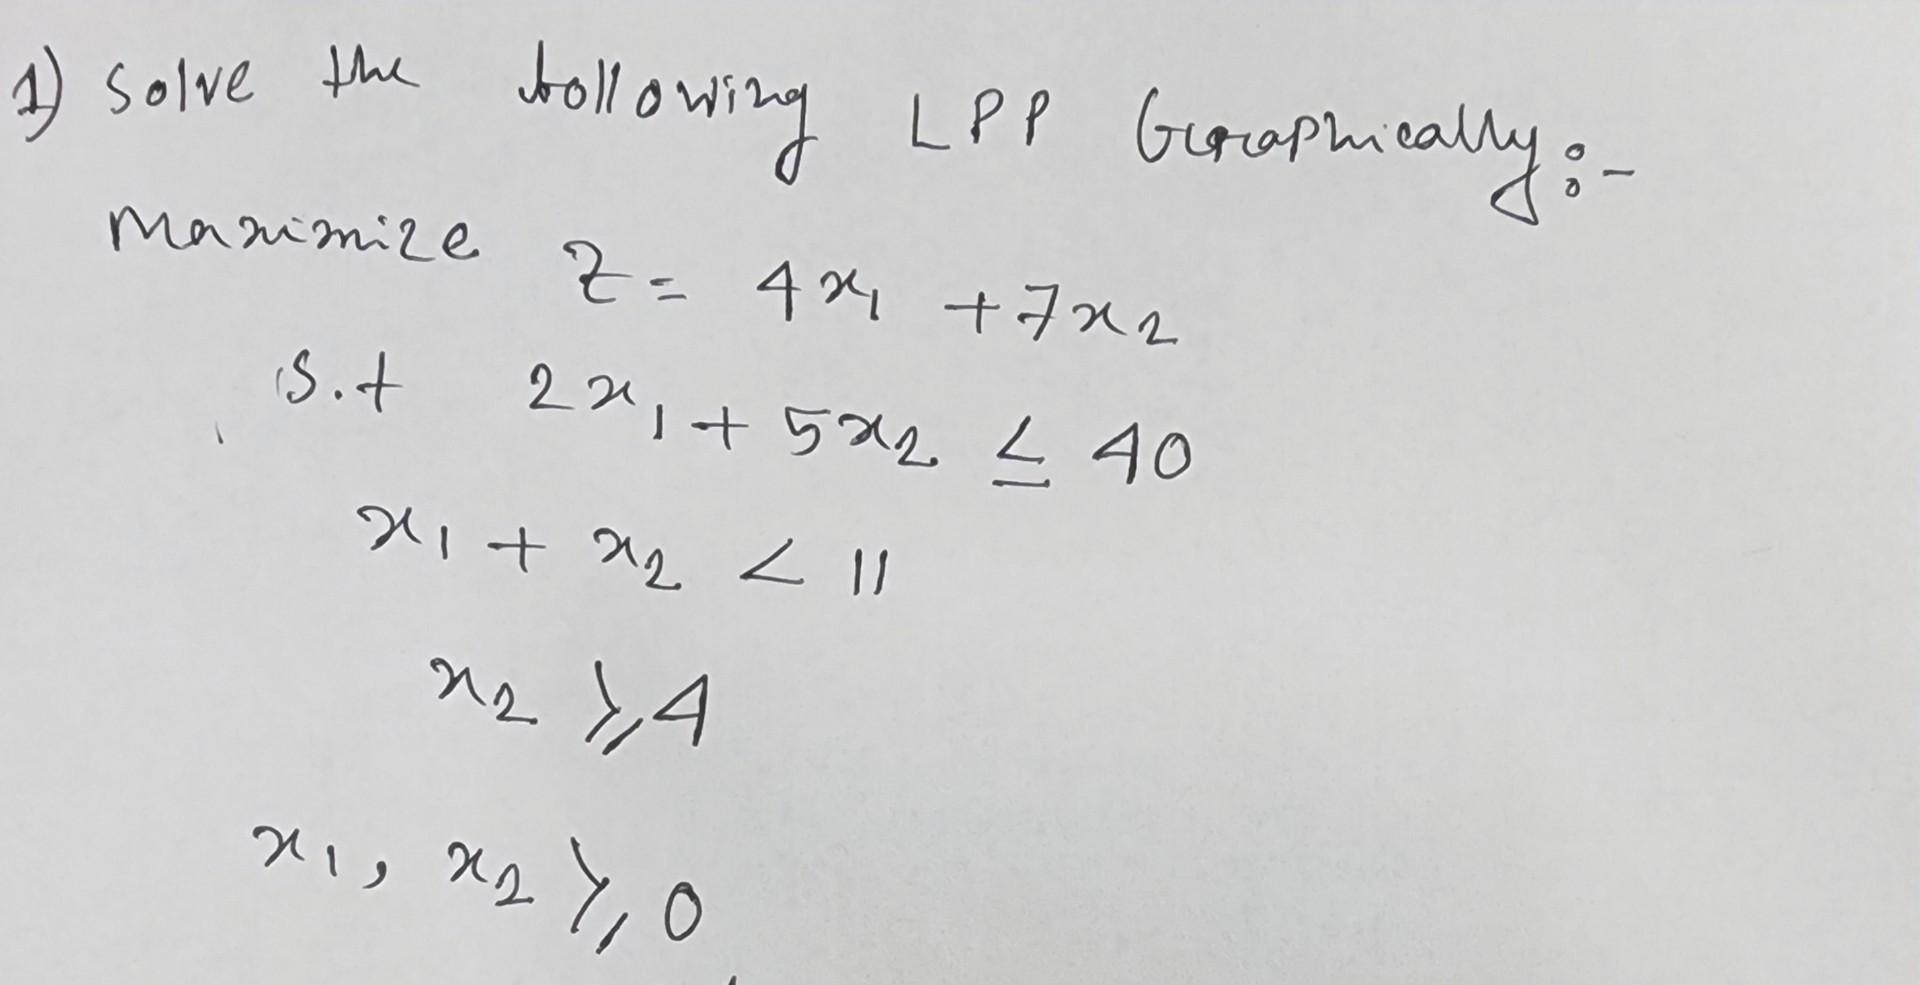 1) Solve the following LPP Graphically:-
Maximize Z = 4x₁ + 7x₂
S.t 2x₁ + 5x₂ ≤ 40
x₁ + x₂ < 11
x₂ ≥ 4
x₁, x₂ ≥ 0